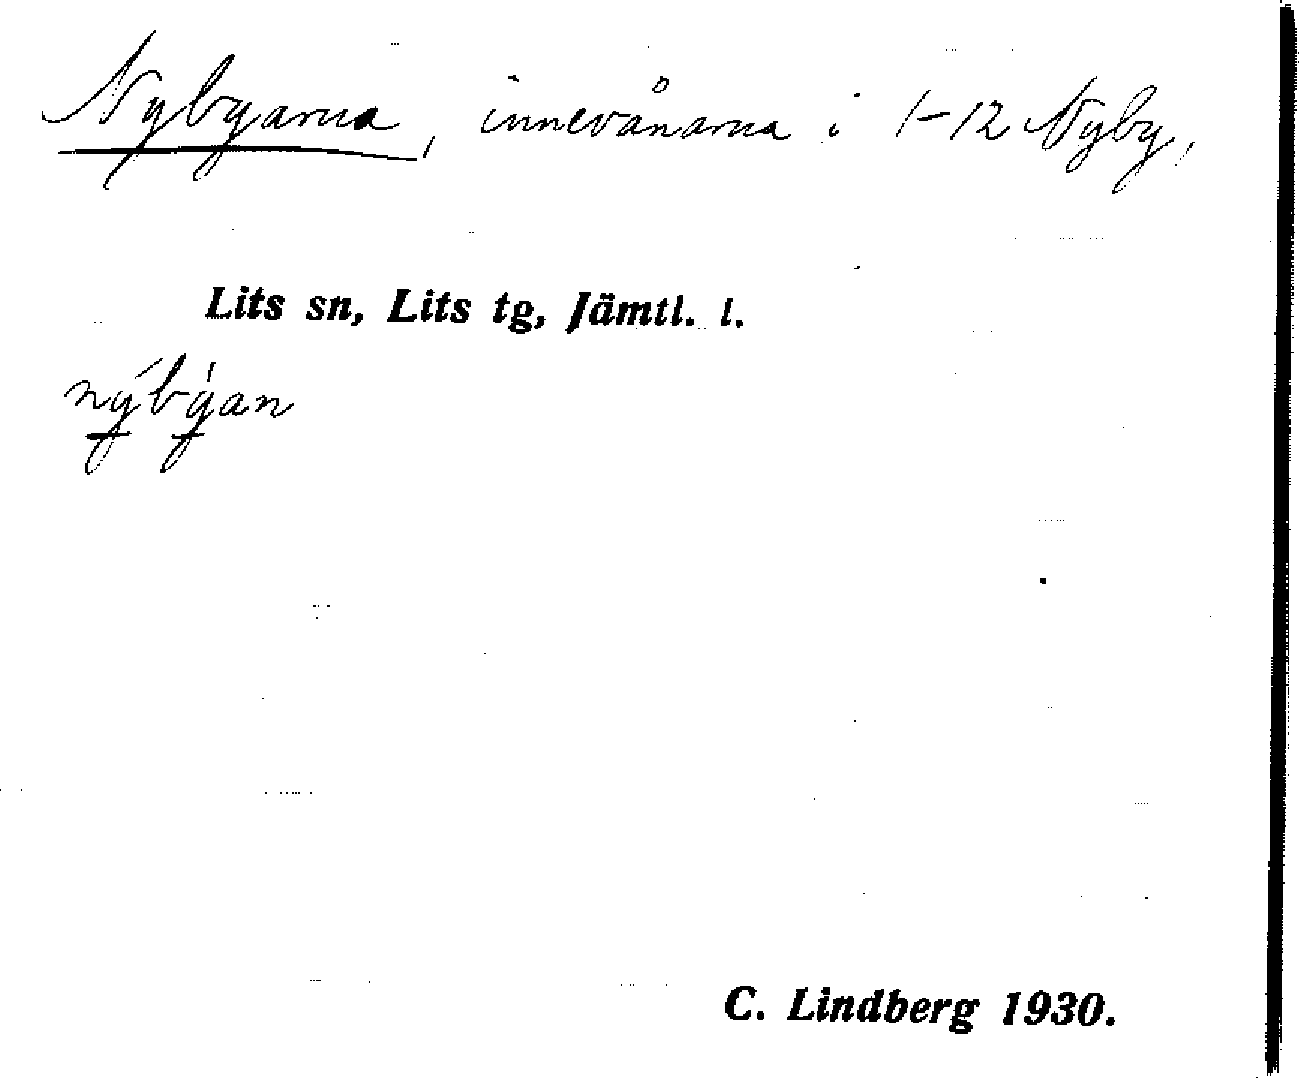 Nybyarna, innevånarna i 1-12 Nyby,
Lits sn, Lits tg, Jämtl. l.
nýbýan
C. Lindberg 1930.